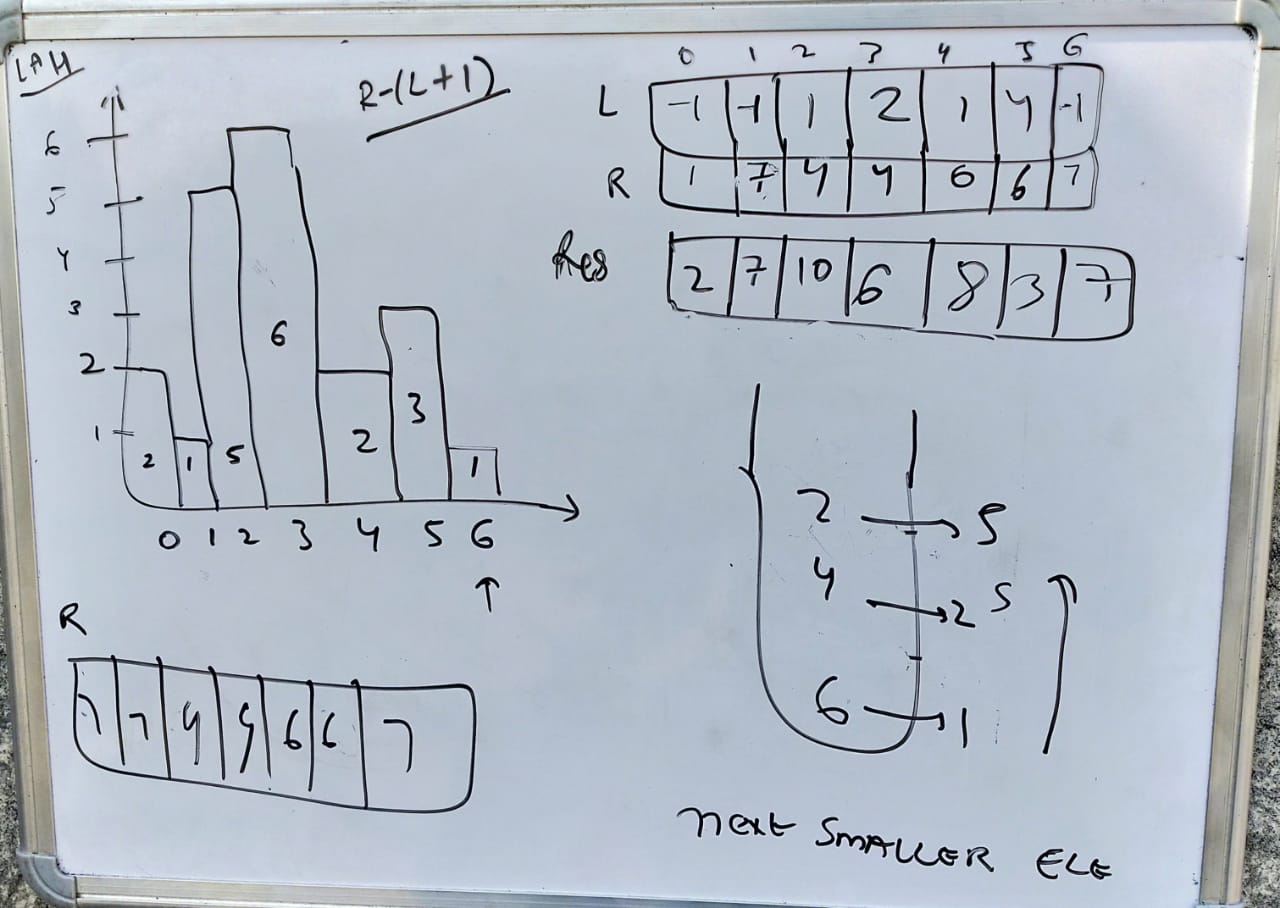 LAH
R-(L+1)
6
5
4
3
2
1
2 1 5 6 2 3 1
0 1 2 3 4 5 6
↑
R
7 4 5 6 6 7
0 1 2 3 4 5 6
L -1 -1 1 2 1 4 -1
R 1 7 4 4 6 6 7
Res 2 7 10 6 8 3 7
2 → 5
4 → 2 5
6 → 1
next SMALLER ELE